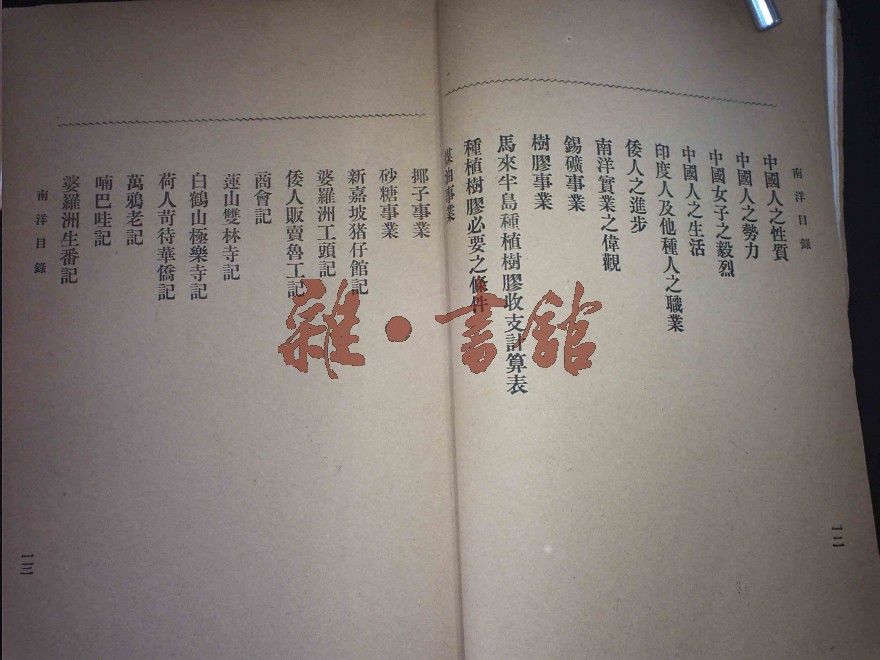 南洋目錄
中國人之性質
中國人之勢力
中國女子之毅烈
中國人之生活
印度人及他種人之職業
倭人之進步
南洋實業之偉觀
錫礦事業
樹膠事業
馬來半島種植樹膠收支計算表
種植樹膠必要之條件
煤油事業
一二
椰子事業
砂糖事業
新嘉坡猪仔館記
婆羅洲工頭記
倭人販賣魯工記
商會記
蓮山雙林寺記
白鶴山極樂寺記
荷人苛待華僑記
萬鴉老記
喃巴哇記
婆羅洲生番記
南洋目錄
一三
雜·書館